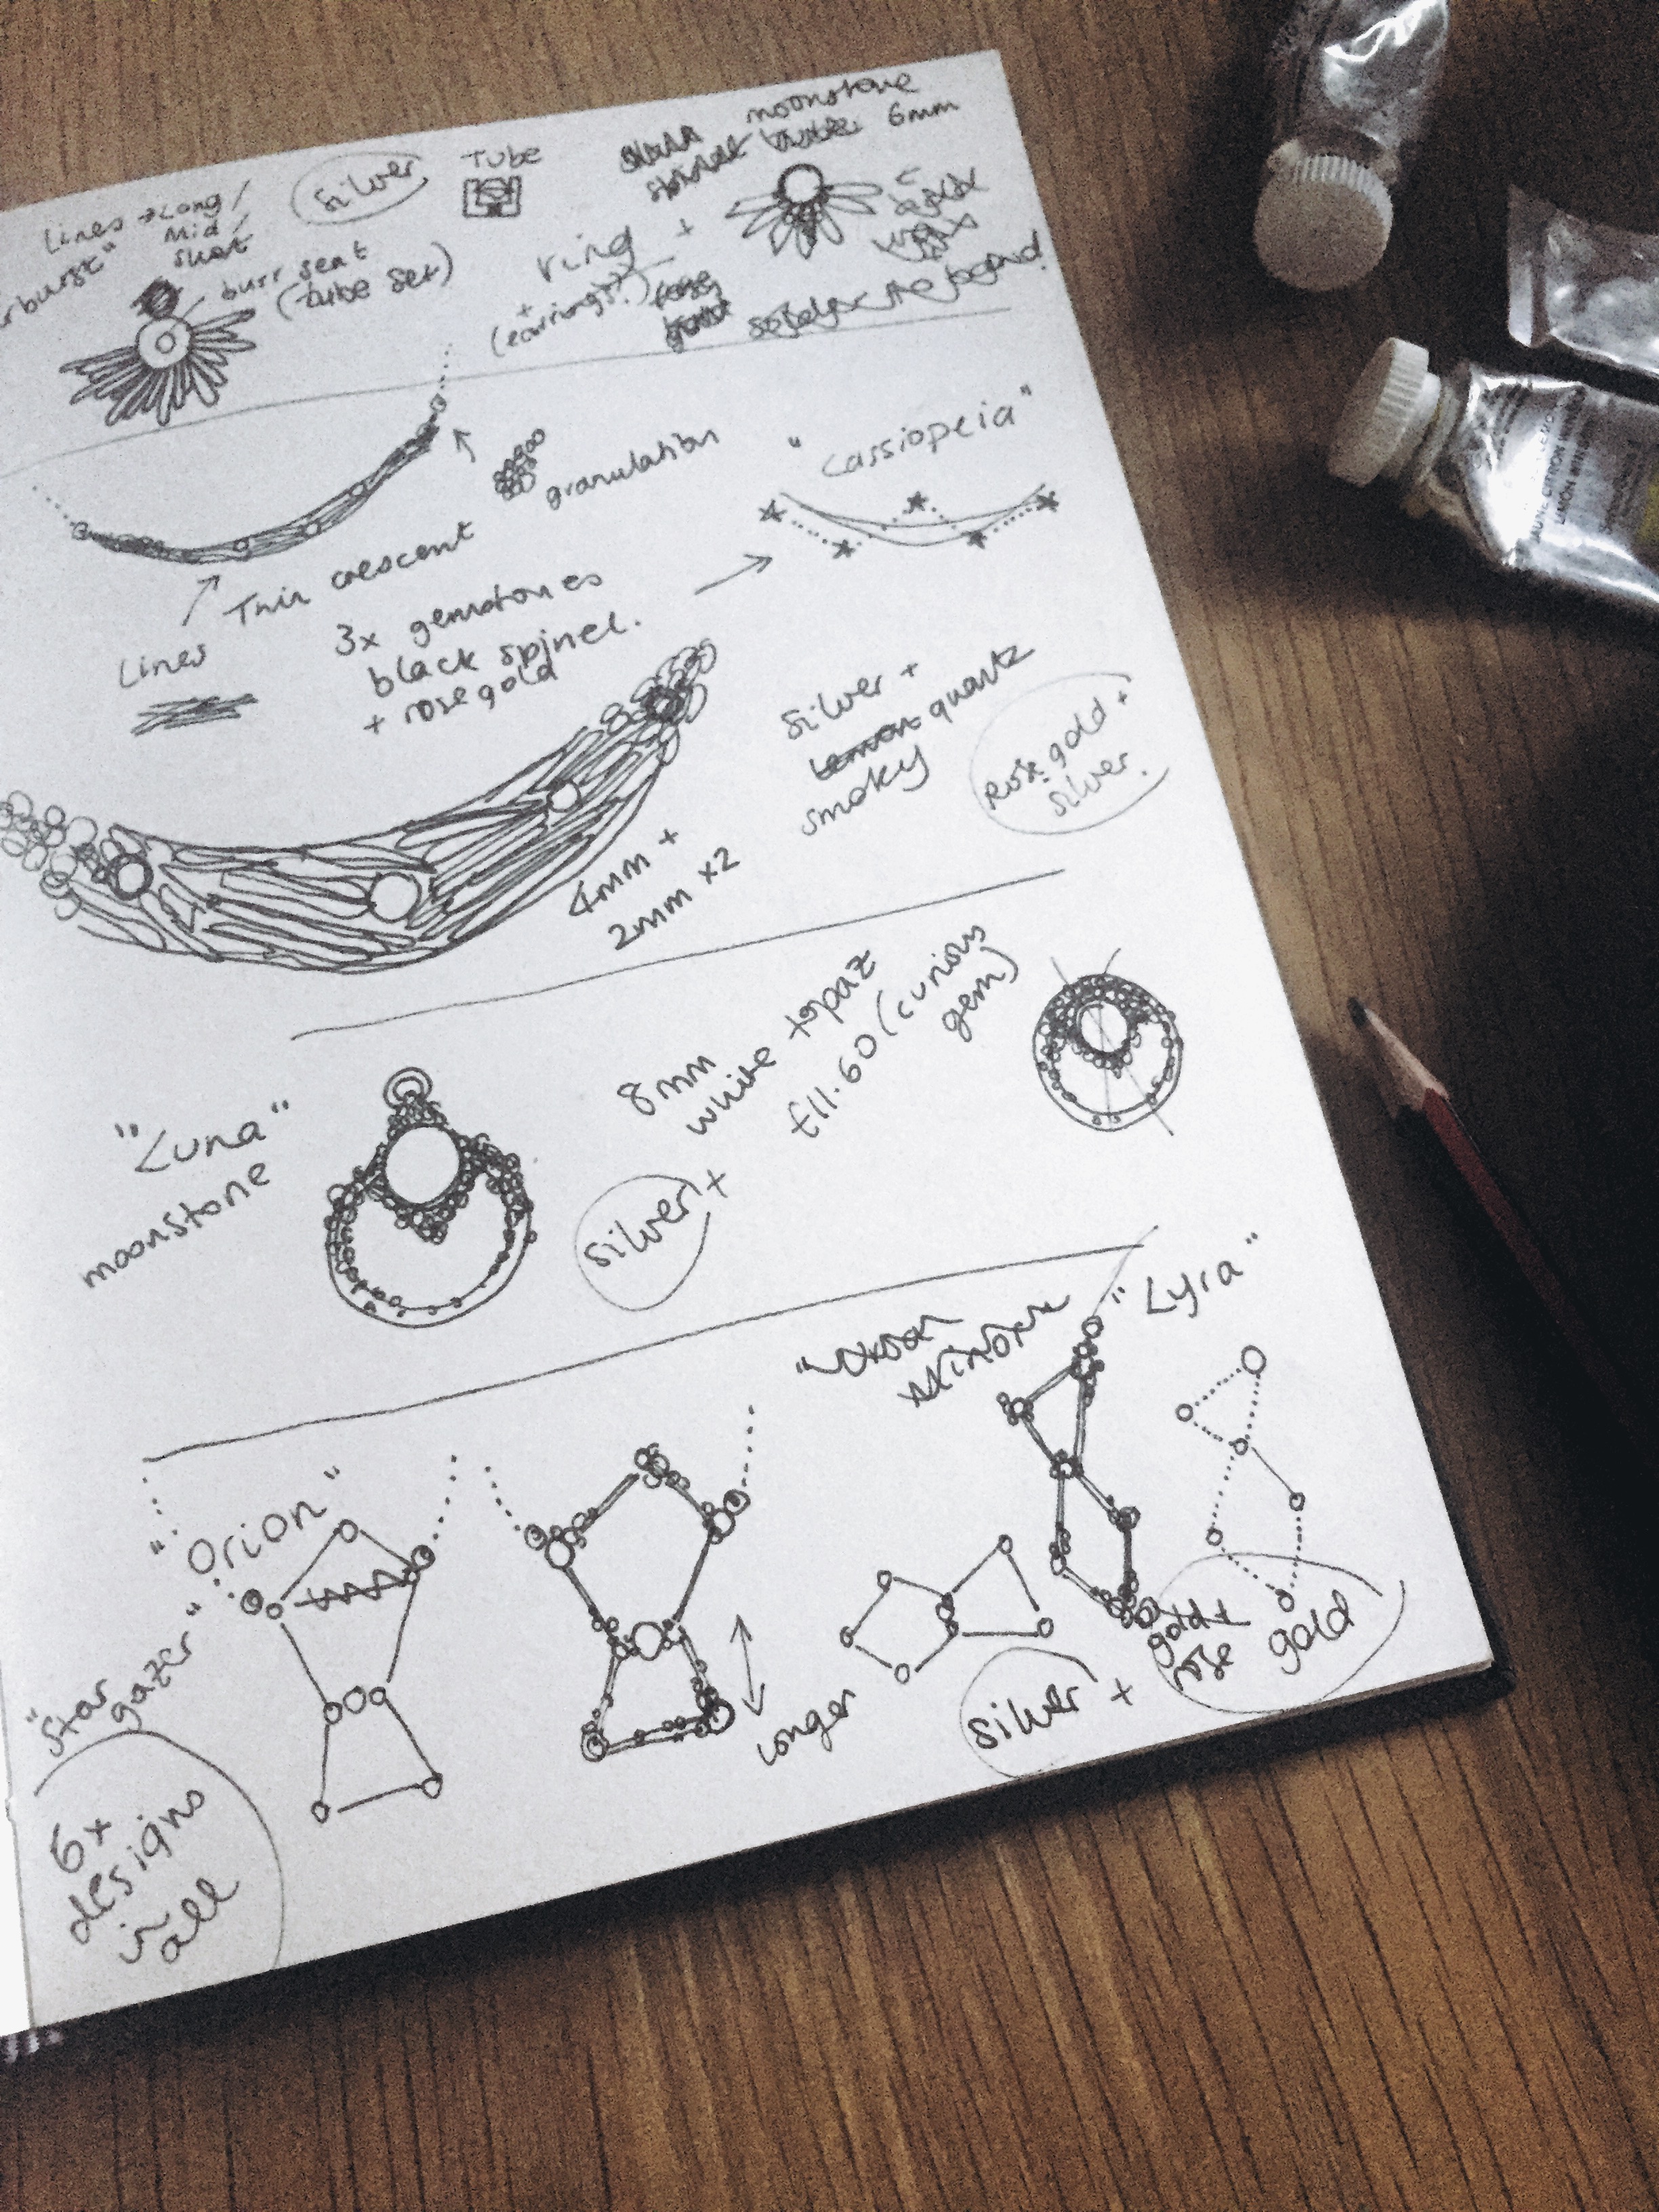 Lines → Long /
Mid /
Short
rburst"
silver
Tube
burr seat
(tube set)
ring +
+
(earrings?)
moonstone
6mm
granulation
"Cassiopeia"
Thin crescent
Lines
3x gemstones
black spinel.
+ rose gold
silver +
lemon quartz
smoky
Rose gold +
silver.
4mm +
2mm x2
"Luna"
moonstone
8mm
white topaz
£11.60 (curious
gem)
silver +
"Orion"
"Star
gazer"
6x
designs
in
all
longer
"Lyra"
silver +
gold +
rose gold